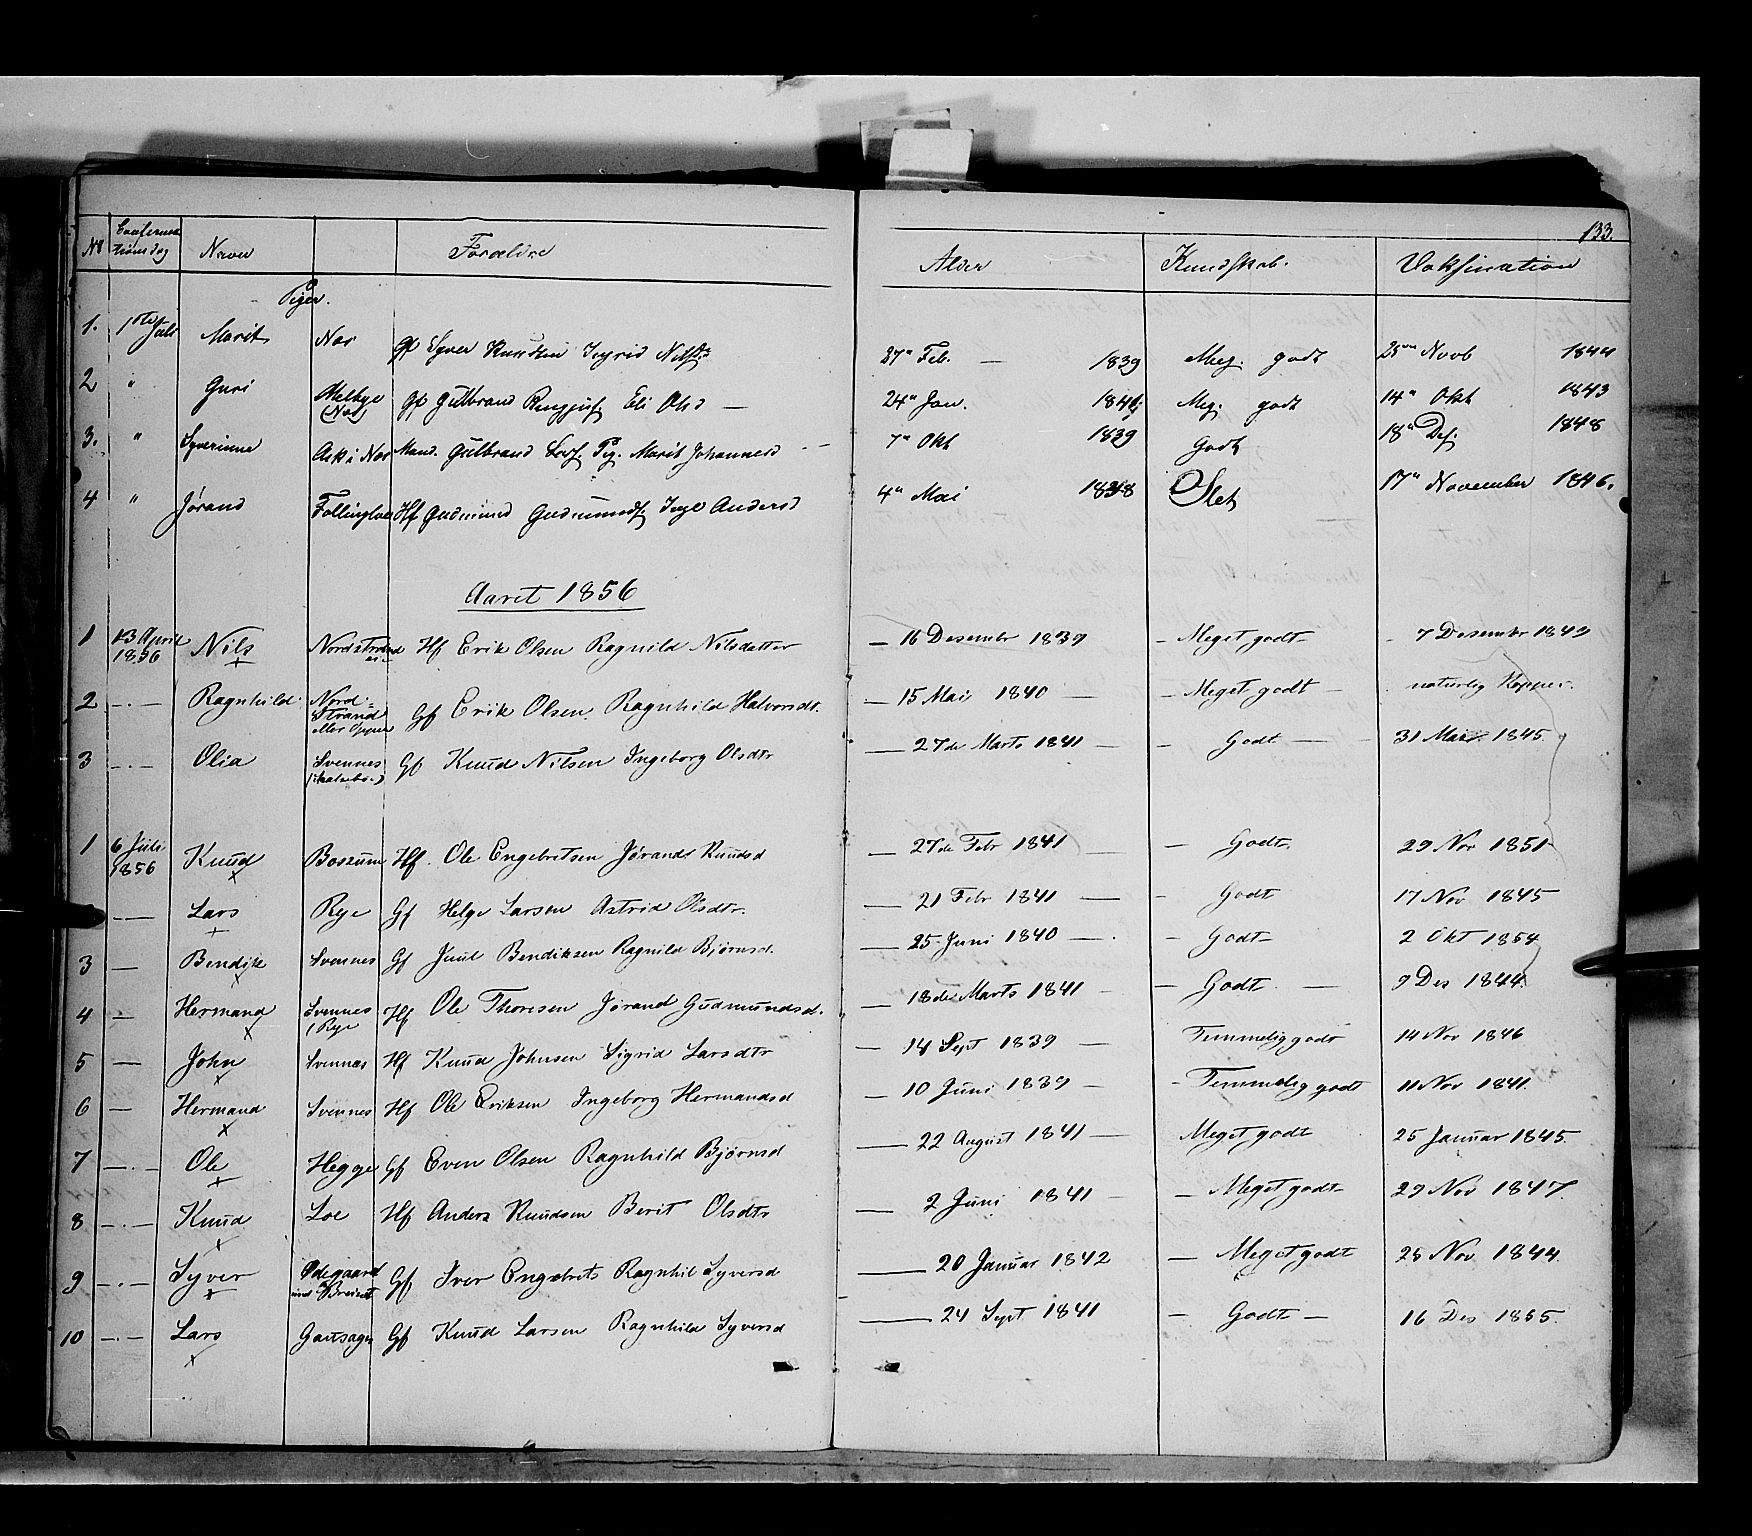 133.
No Confirma-tionsdag Navn Forældre Alder Kundskab. Vaksination
Piger.
1. 1ste Juli Marit Nos Gf Syver Knudsen Ingrid Nilsd 27" Feb. — 1839 Meg. godt 25 Novb 1844
2 " Guri Melbye (Nos) Gf Gulbrand Eli Olsd — 24" Jan. 1840 Meg. godt 14" Okt 1843
3. " Syverinne Ask i Nos Mand. Gulbrand Pig. Marit Johannesd 7" Okt 1839 Godt 18" Des. 1848
4 " Jørand Follingloe Hf Gudmund Gudmunds Inge Andersd 4" Mai 1838 Slet 17" November 1846.
Aaret 1856
1 13 April 1856 Nils Nordstrand Hf Erik Olsen Ragnild Nilsdatter — 16 Desembr 1839 — Meget godt — 7 Desembr 1842
2 —.— Ragnhild Nord-Strand eller Gf Erik Olsen Ragnhild Halvorsdt. — 15 Mai 1840 — — Meget godt — naturlig Kopper.
3 —.— Olia Svennes Gf Knud Nilsen Ingeborg Olsdtr — 27de Marts 1841 — — Godt — 31 Mai 1845
1 6 Juli 1856 Knud Bossum Hf. Ole Engebritsen Jørand Knudsd — 27de Febr 1841 — Godt. 29 Nov 1851
—— Lars Rye Gf Helge Larsen Astrid Olsdtr. — 21 Febr 1841 — — Godt 17 Nov 1845
3 — Bendik Svennes Gf Juul Bendiksen Ragnild Bjørnsd. — 25 Juni 1840 —. — Godt 2 Okt 1854
4 — Hermand Svennes (Rye Hf Ole Thoresen Jørand Gudmundsd. — 18de Marts 1841 — — Godt — 9 Des 1844
5 — John Svennes Hf Knud Johnsen Sigrid Larsdtr — 14 Sept 1839 — Temmelig godt 14 Nov 1846
6 — Hermand Svennes Hf Ole Eriksen Ingeborg Hermandsd — 10 Juni 1839 — — Temmelig godt 11 Nov 1841
7 —.— Ole Hegge Gf Even Olsen Ragnhild Bjørnsd — 22 August 1841 — Meget godt 25 Januar 1845.
8 —.— Knud Loe Hf Anders Knudsen Berit Olsdtr 2 Juni 1841 — — Meget godt 29 Nov 1847.
9 —.— Syver Ødegaard Gf Iver Engebrets Ragnhil Syversd — 20 Januar 1842 — Meget godt 25 Nov 1844.
10 —.— Lars Gf Knud Larsen Ragnhild Syversd — 24 Sept 1841 — Godt — 16 Des 1855.